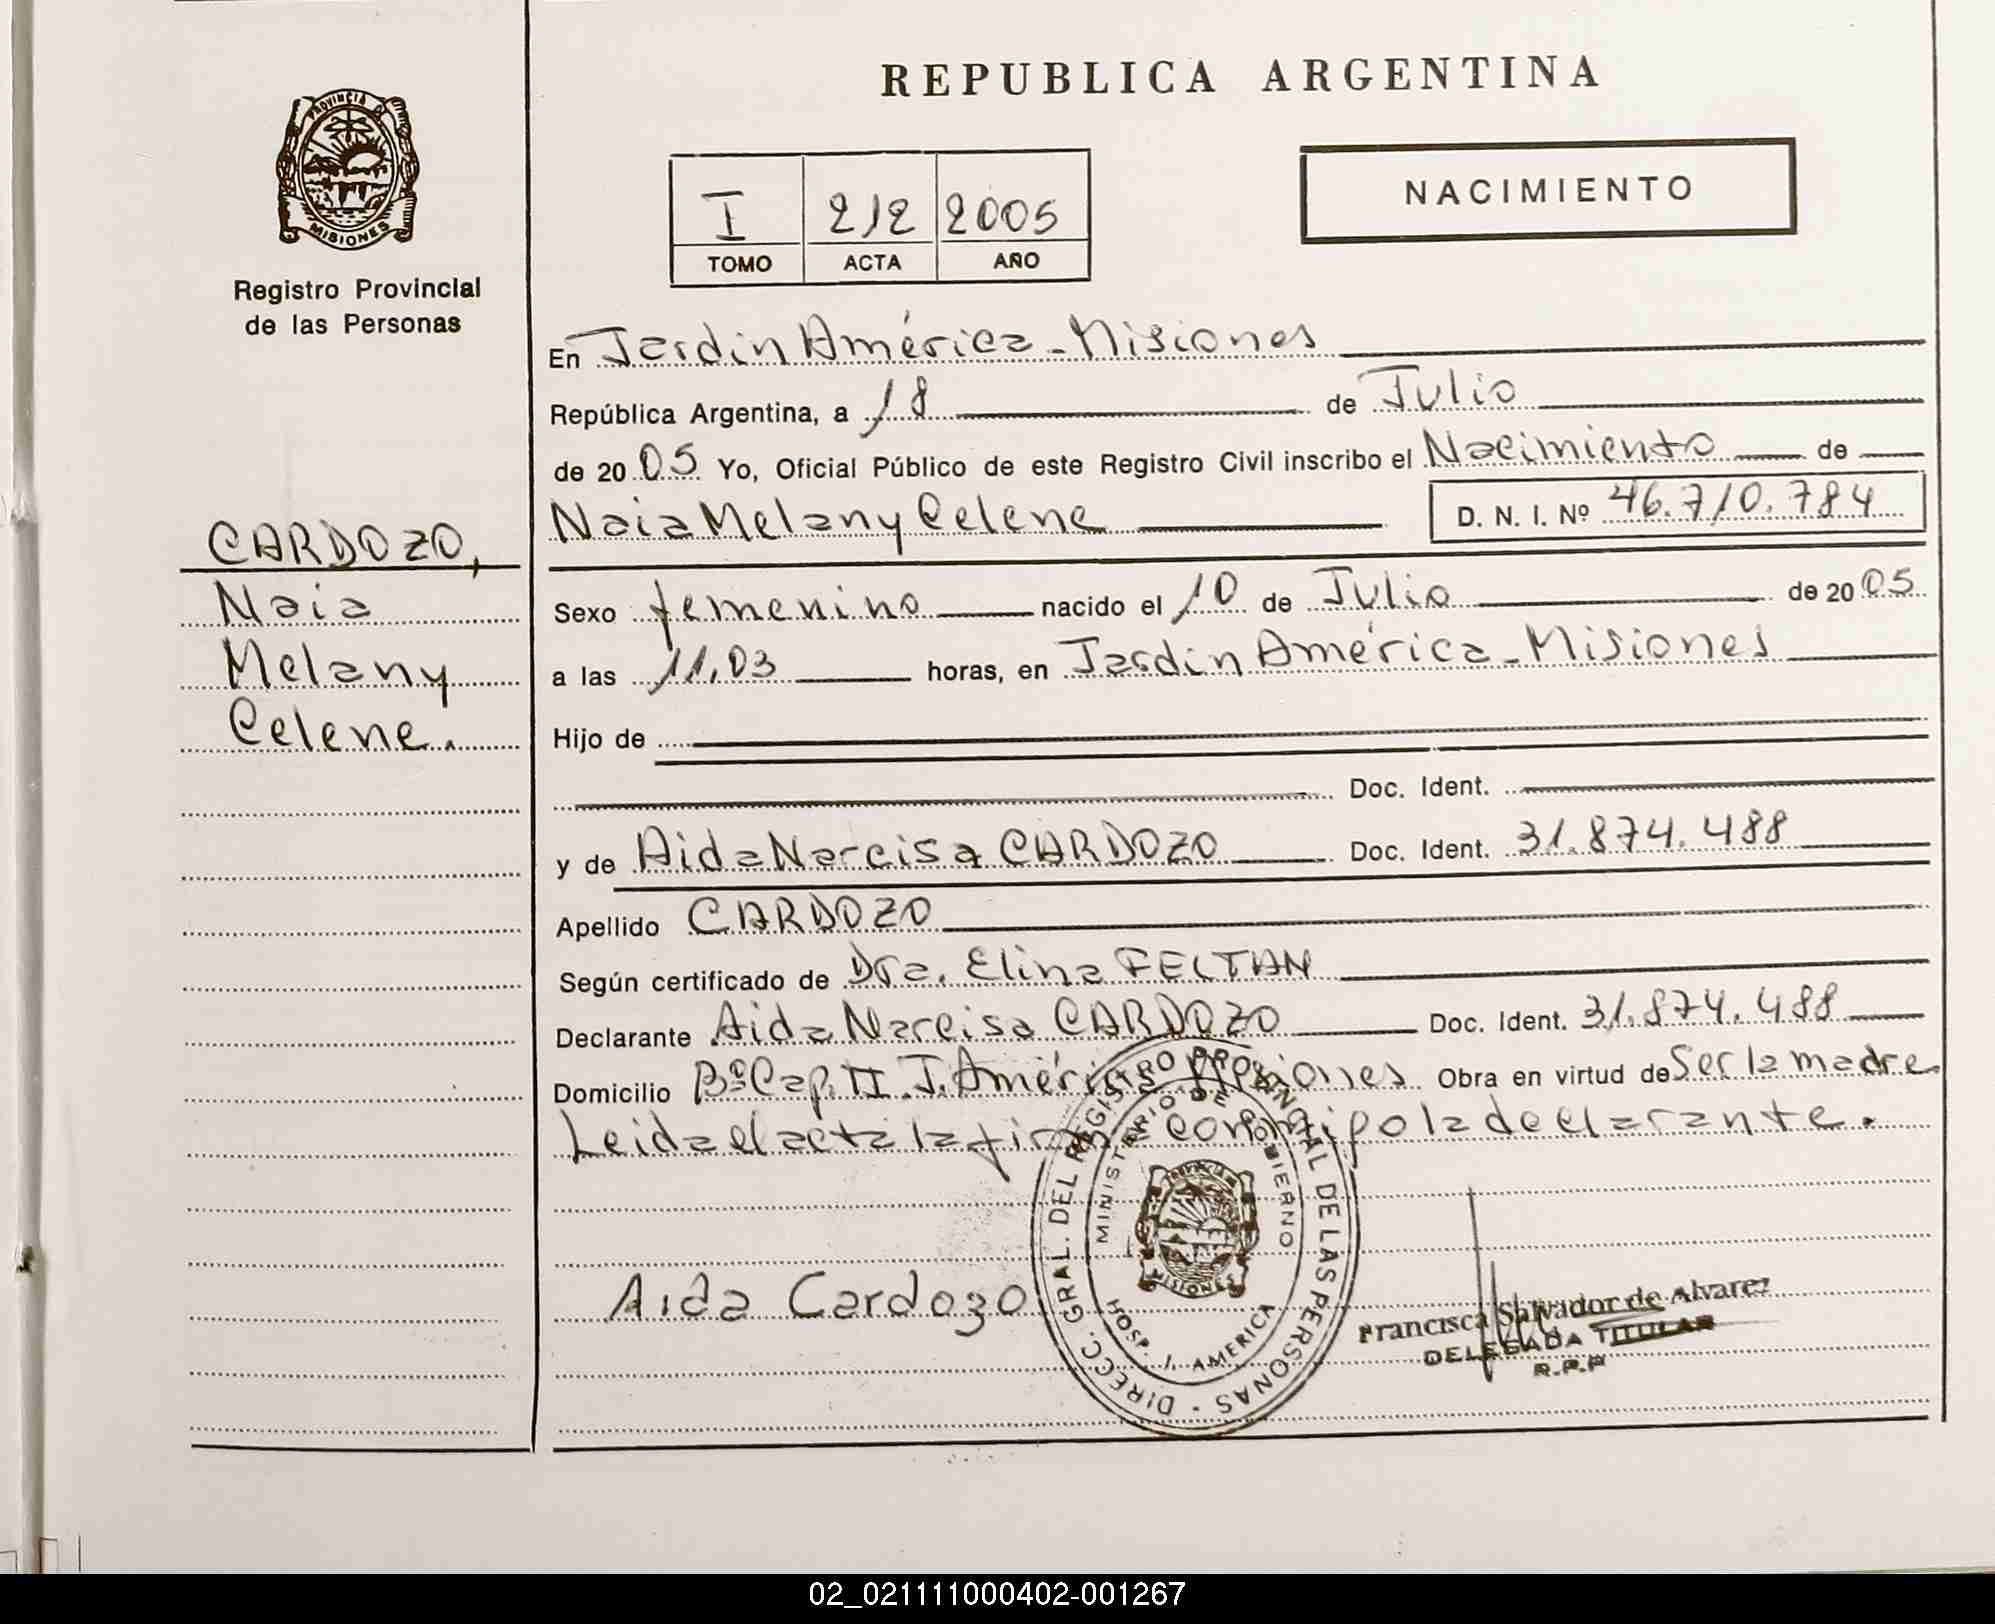 REPUBLICA ARGENTINA
PROVINCIA DE
MISIONES
Registro Provincial
de las Personas
I 212 2005
TOMO ACTA AÑO
NACIMIENTO
CARDOZO,
Naia
Melany
Celene.
En Jardín América - Misiones
República Argentina, a 18 de Julio
de 2005 Yo, Oficial Público de este Registro Civil inscribo el Nacimiento de
Naia Melany Celene D. N. I. Nº 46.710.784
Sexo femenino nacido el 10 de Julio de 2005
a las 11,03 horas, en Jardín América - Misiones
Hijo de
Doc. Ident.
y de Aida Narcisa CARDOZO Doc. Ident. 31.874.488
Apellido CARDOZO
Según certificado de Dra. Elina FELTAN
Declarante Aida Narcisa CARDOZO Doc. Ident. 31.874.488
Domicilio Bº Cap. II. J. América Misiones Obra en virtud de Ser la madre
Leida el acta la firma conmigo la declarante.
Aida Cardozo
DIRECC. GRAL. DEL REGISTRO PROVINCIAL DE LAS PERSONAS -
MINISTERIO DE GOBIERNO
MISIONES
HOSP. J. AMERICA
Francisca Salvador de Alvarez
DELEGADA TITULAR
R.P.P
02_021111000402-001267